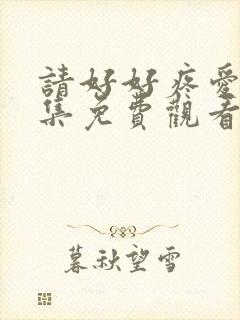 請好好疼愛
集免費觀看
暮秋望雪